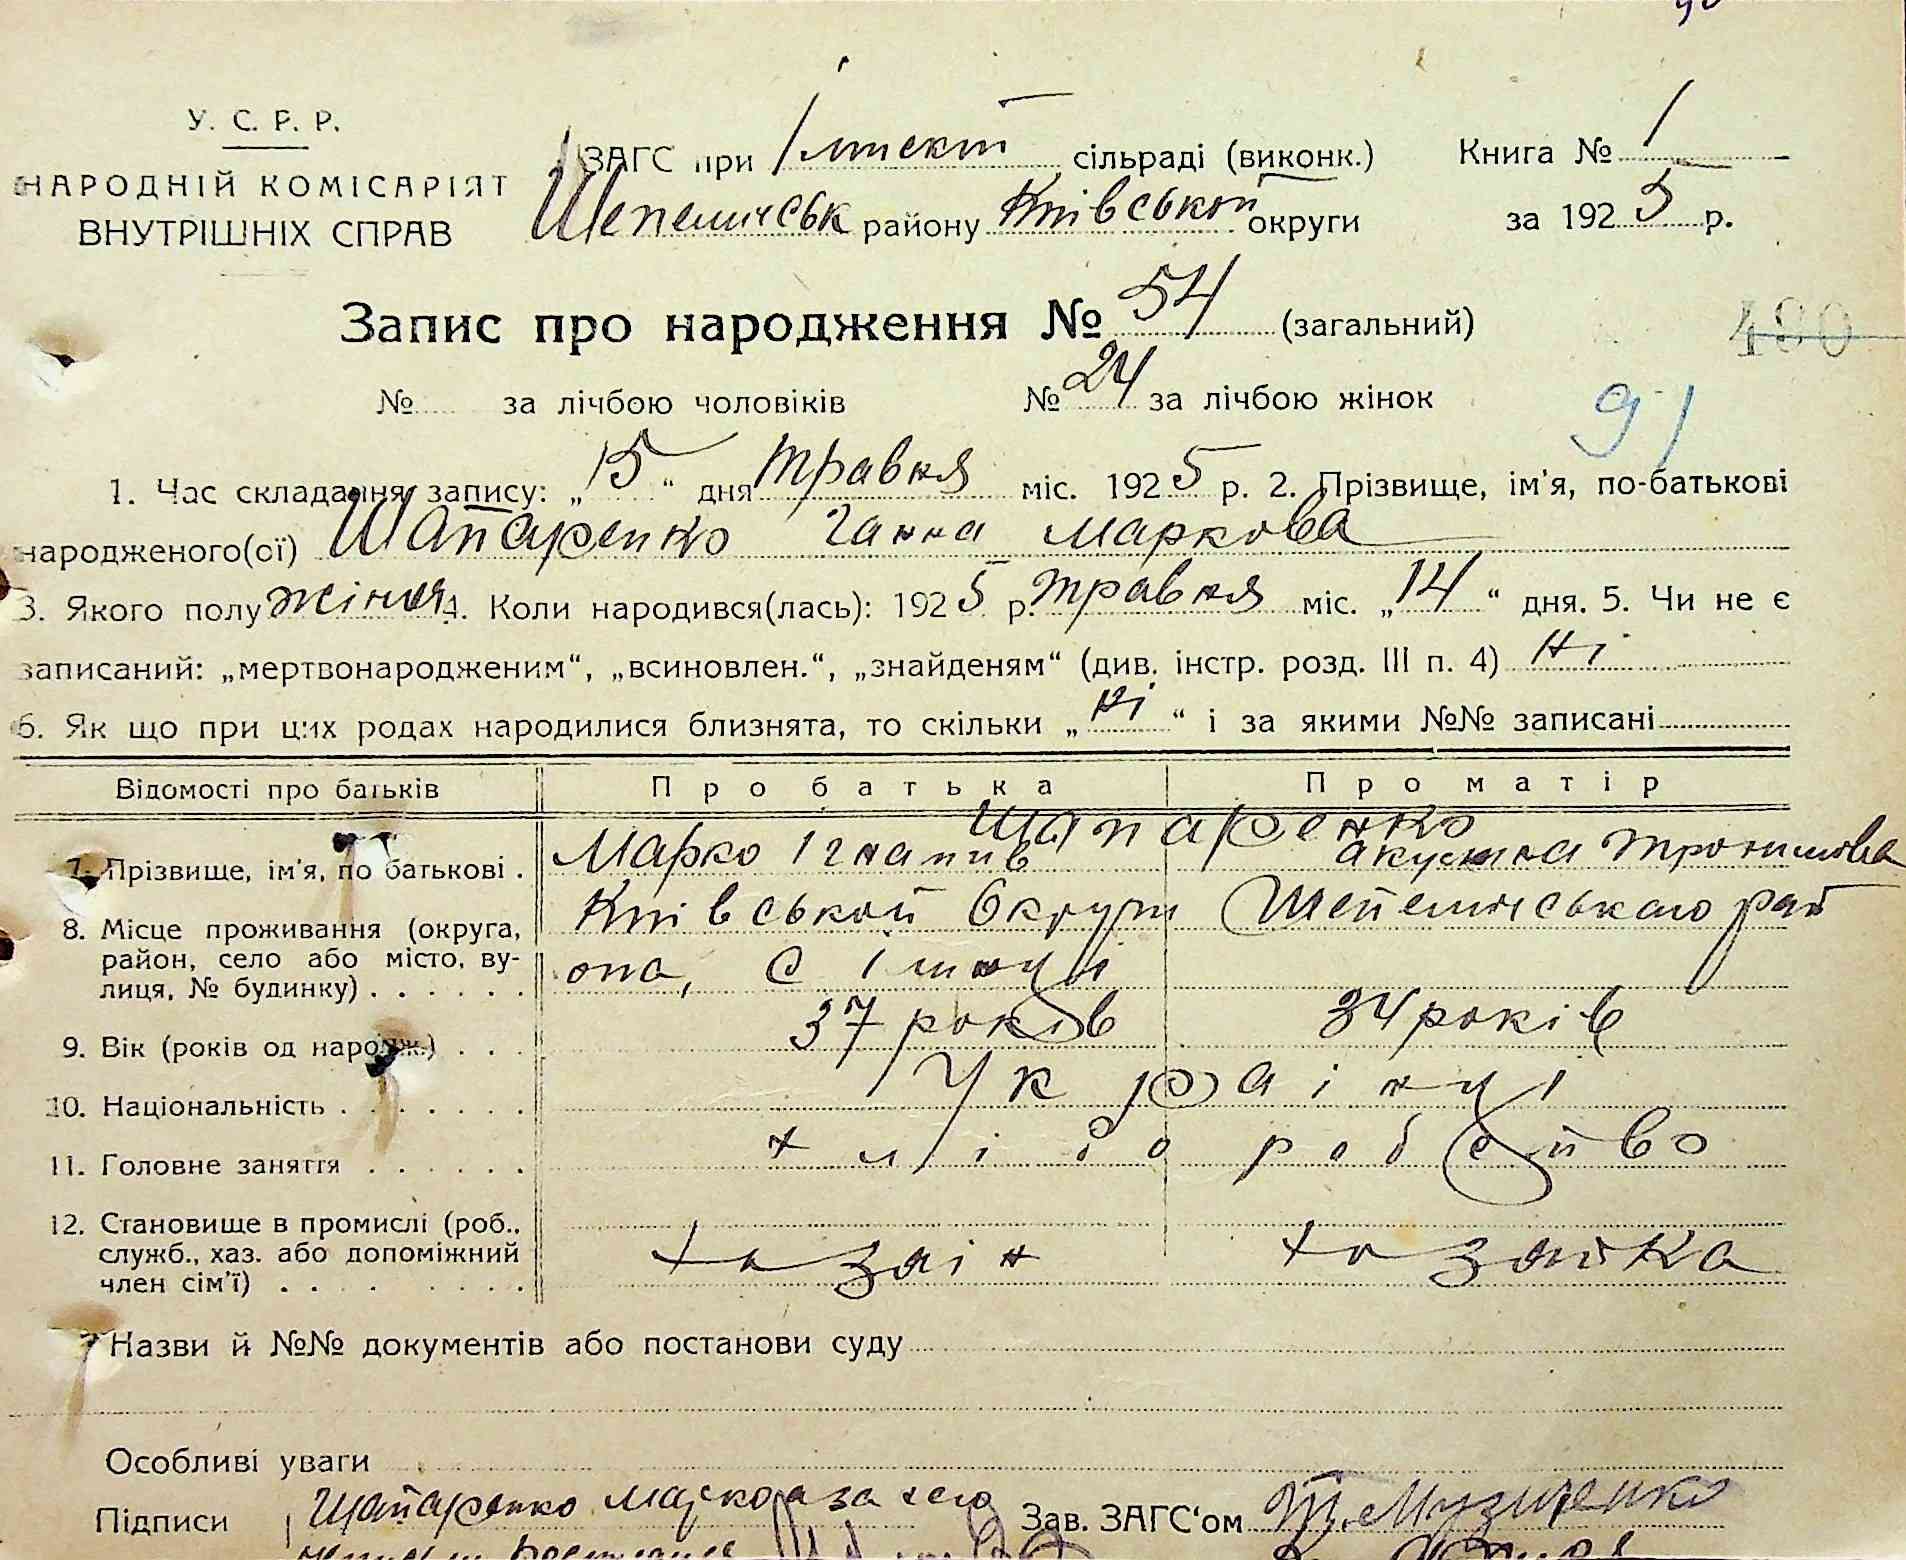 У. С. Р. Р.
НАРОДНІЙ КОМІСАРІЯТ
ВНУТРІШНІХ СПРАВ
ЗАГС при сільраді (виконк.)
Шепеличськ району Київської округи
Книга № 1
за 1925 р.
Запис про народження № 54 (загальний)
№ за лічбою чоловіків № 24 за лічбою жінок
490
91
1. Час складання запису: „15“ дня травня міс. 1925 р. 2. Прізвище, ім'я, по-батькові
народженого(ої) Шапаренко Ганна Маркова
3. Якого полу жіноч 4. Коли народився(лась): 1925 р. травня міс. „14“ дня. 5. Чи не є
записаний: „мертвонародженим“, „всиновлен.“, „знайденям“ (див. інстр. розд. III п. 4) Ні
6. Як що при цих родах народилися близнята, то скільки „Ні“ і за якими №№ записані
Відомості про батьків Про батька Про матір
Шапаренко
7. Прізвище, ім'я, по батькові . Марко Ігнатів
8. Місце проживання (округа, Київськой Округи Шепеличського рай
район, село або місто, ву- она, с
лиця, № будинку) . . . . . .
9. Вік (років од народж.) . . . 37 років 34 років
10. Національність . . . . . . . Українці
11. Головне заняття . . . . . . хліборобство
12. Становище в промислі (роб.,
служб., хаз. або допоміжний хазаїн хазяйка
член сім'ї) . . . . . . .
Назви й №№ документів або постанови суду
Особливі уваги
Підписи Шапаренко Марко а за него Зав. ЗАГС'ом Т. Музиченко